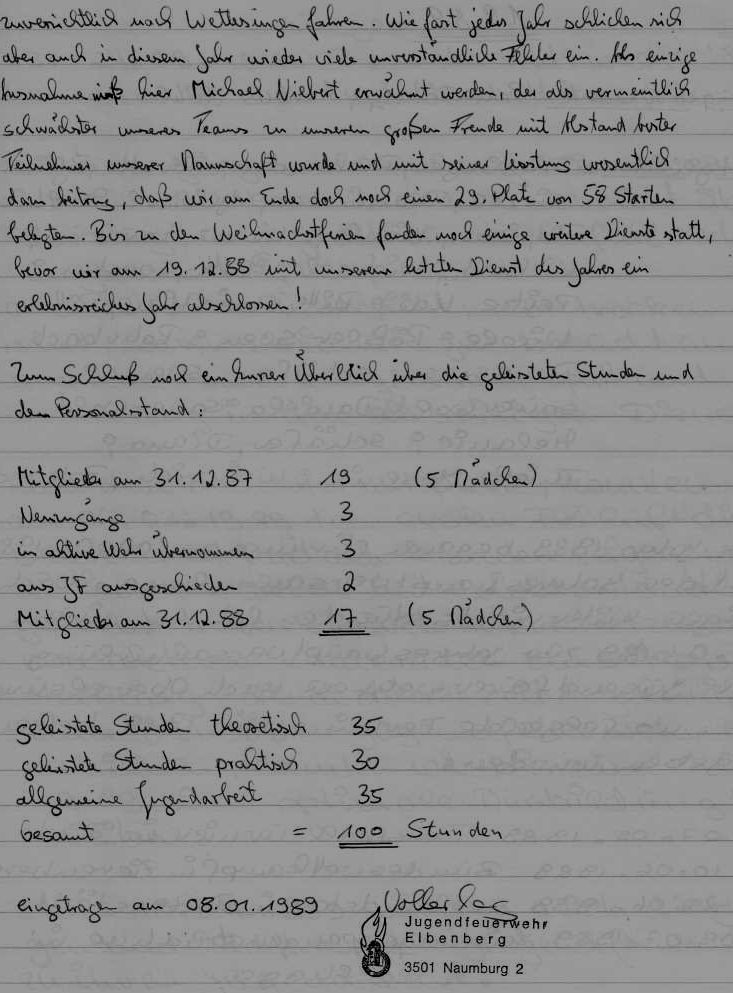 zuversichtlich nach Wettesingen fahren. Wie fast jedes Jahr schlichen sich
aber auch in diesem Jahr wieder viele unverständliche Fehler ein. Als einzige
Ausnahme muß hier Michael Niebert erwähnt werden, der als vermeintlich
schwächster unseres Teams zu unserem großen Freude mit Abstand bester
Teilnehmer unserer Mannschaft wurde und mit seiner Leistung wesentlich
dazu beitrug, daß wir am Ende doch noch einen 29. Platz von 58 Starten
belegten. Bis zu den Weihnachtsferien fanden noch einige weitere Dienste statt,
bevor wir am 19.12.88 mit unserem letzten Dienst des Jahres ein
erlebnisreiches Jahr abschlossen!
Zum Schluß noch ein kurzer Überblick über die geleisteten Stunden und
den Personalstand:
Mitglieder am 31.12.87 19 (5 Mädchen)
Neuzugänge 3
in aktive Wehr übernommen 3
aus JF ausgeschieden 2
Mitglieder am 31.12.88 17 (5 Mädchen)
geleistete Stunden theoretisch 35
geleistete Stunden praktisch 30
allgemeine Jugendarbeit 35
Gesamt = 100 Stunden
eingetragen am 08.01.1989
Jugendfeuerwehr
Elbenberg
3501 Naumburg 2